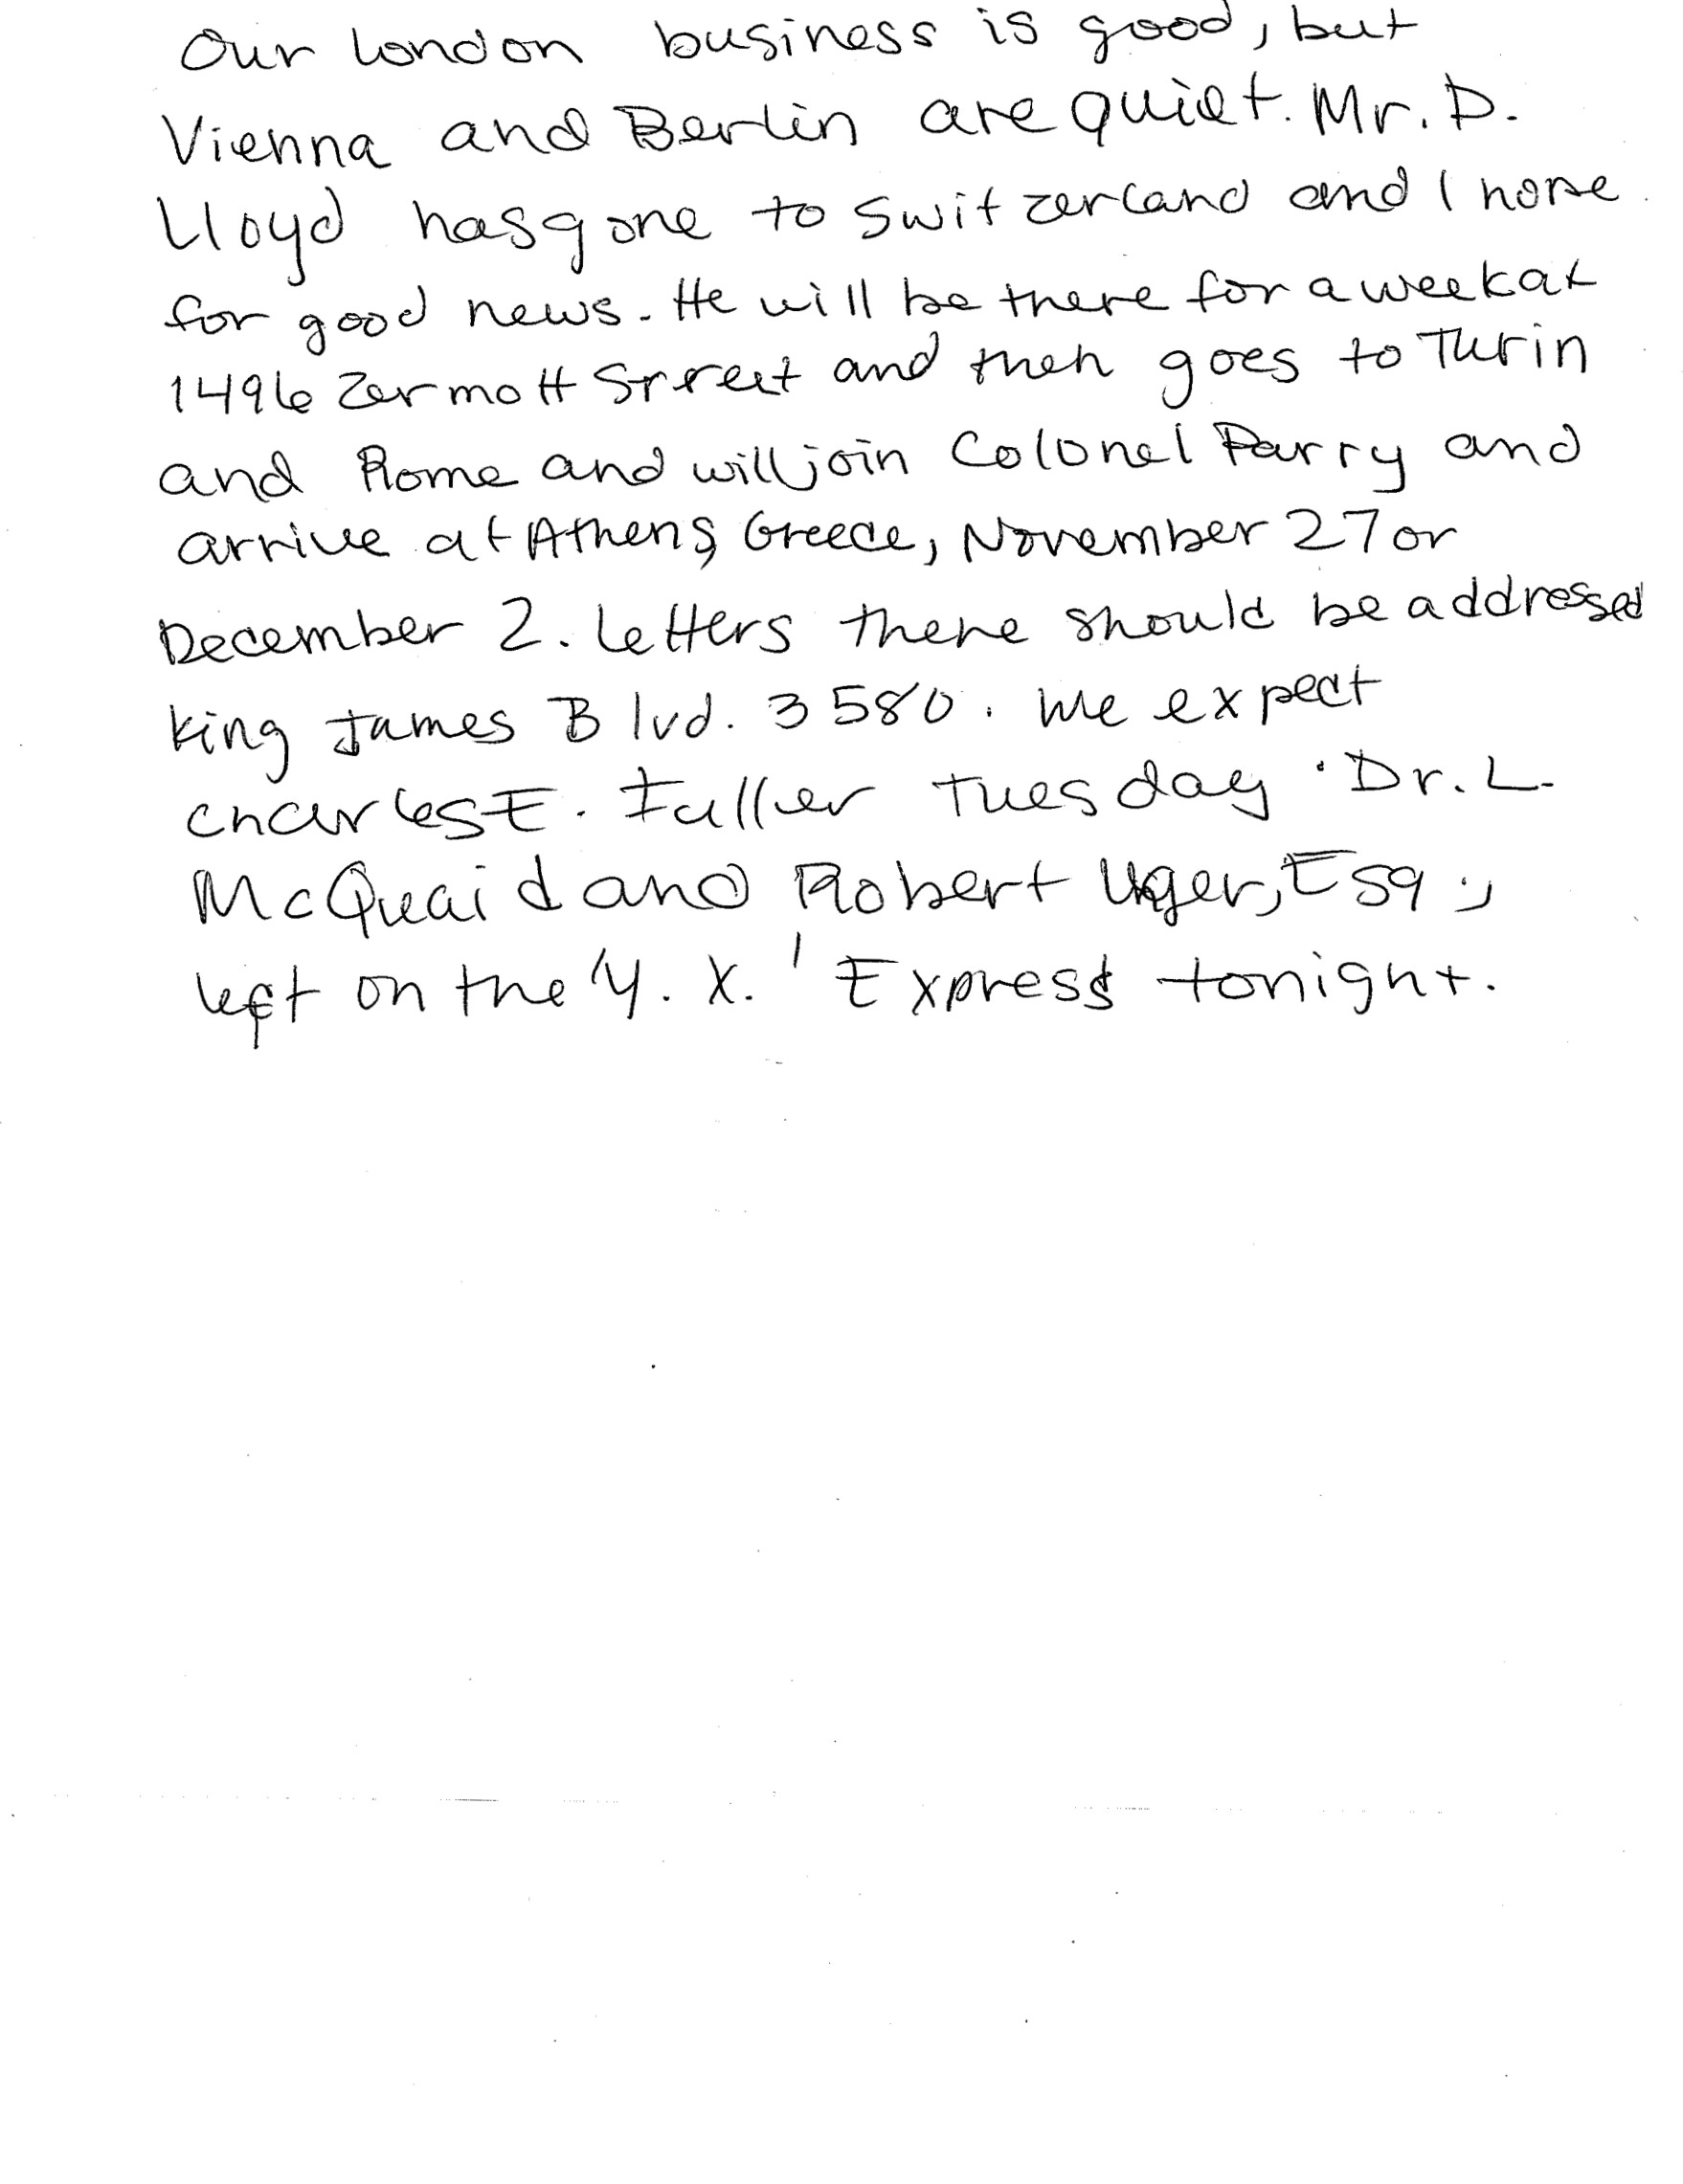 Our London business is good, but
Vienna and Berlin are quiet. Mr. D.
Lloyd has gone to Switzerland and I hope
for good news. He will be there for a week at
1496 Zermott Street and then goes to Turin
and Rome and will join Colonel Parry and
arrive at Athens, Greece, November 27 or
December 2. Letters there should be addressed
King James Blvd. 3580. We expect
Charles E. Fuller Tuesday. Dr. L.
McQuaid and Robert Unger, Esq.,
left on the 'Y. X.' Express tonight.